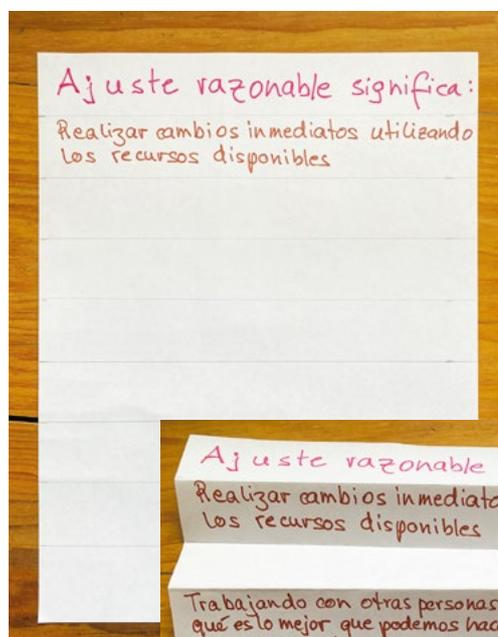 Ajuste razonable significa:
Realizar cambios inmediatos utilizando
los recursos disponibles
Ajuste razonable
Realizar cambios inmediato
los recursos disponibles
Trabajando con otras personas
qué es lo mejor que podemos hac